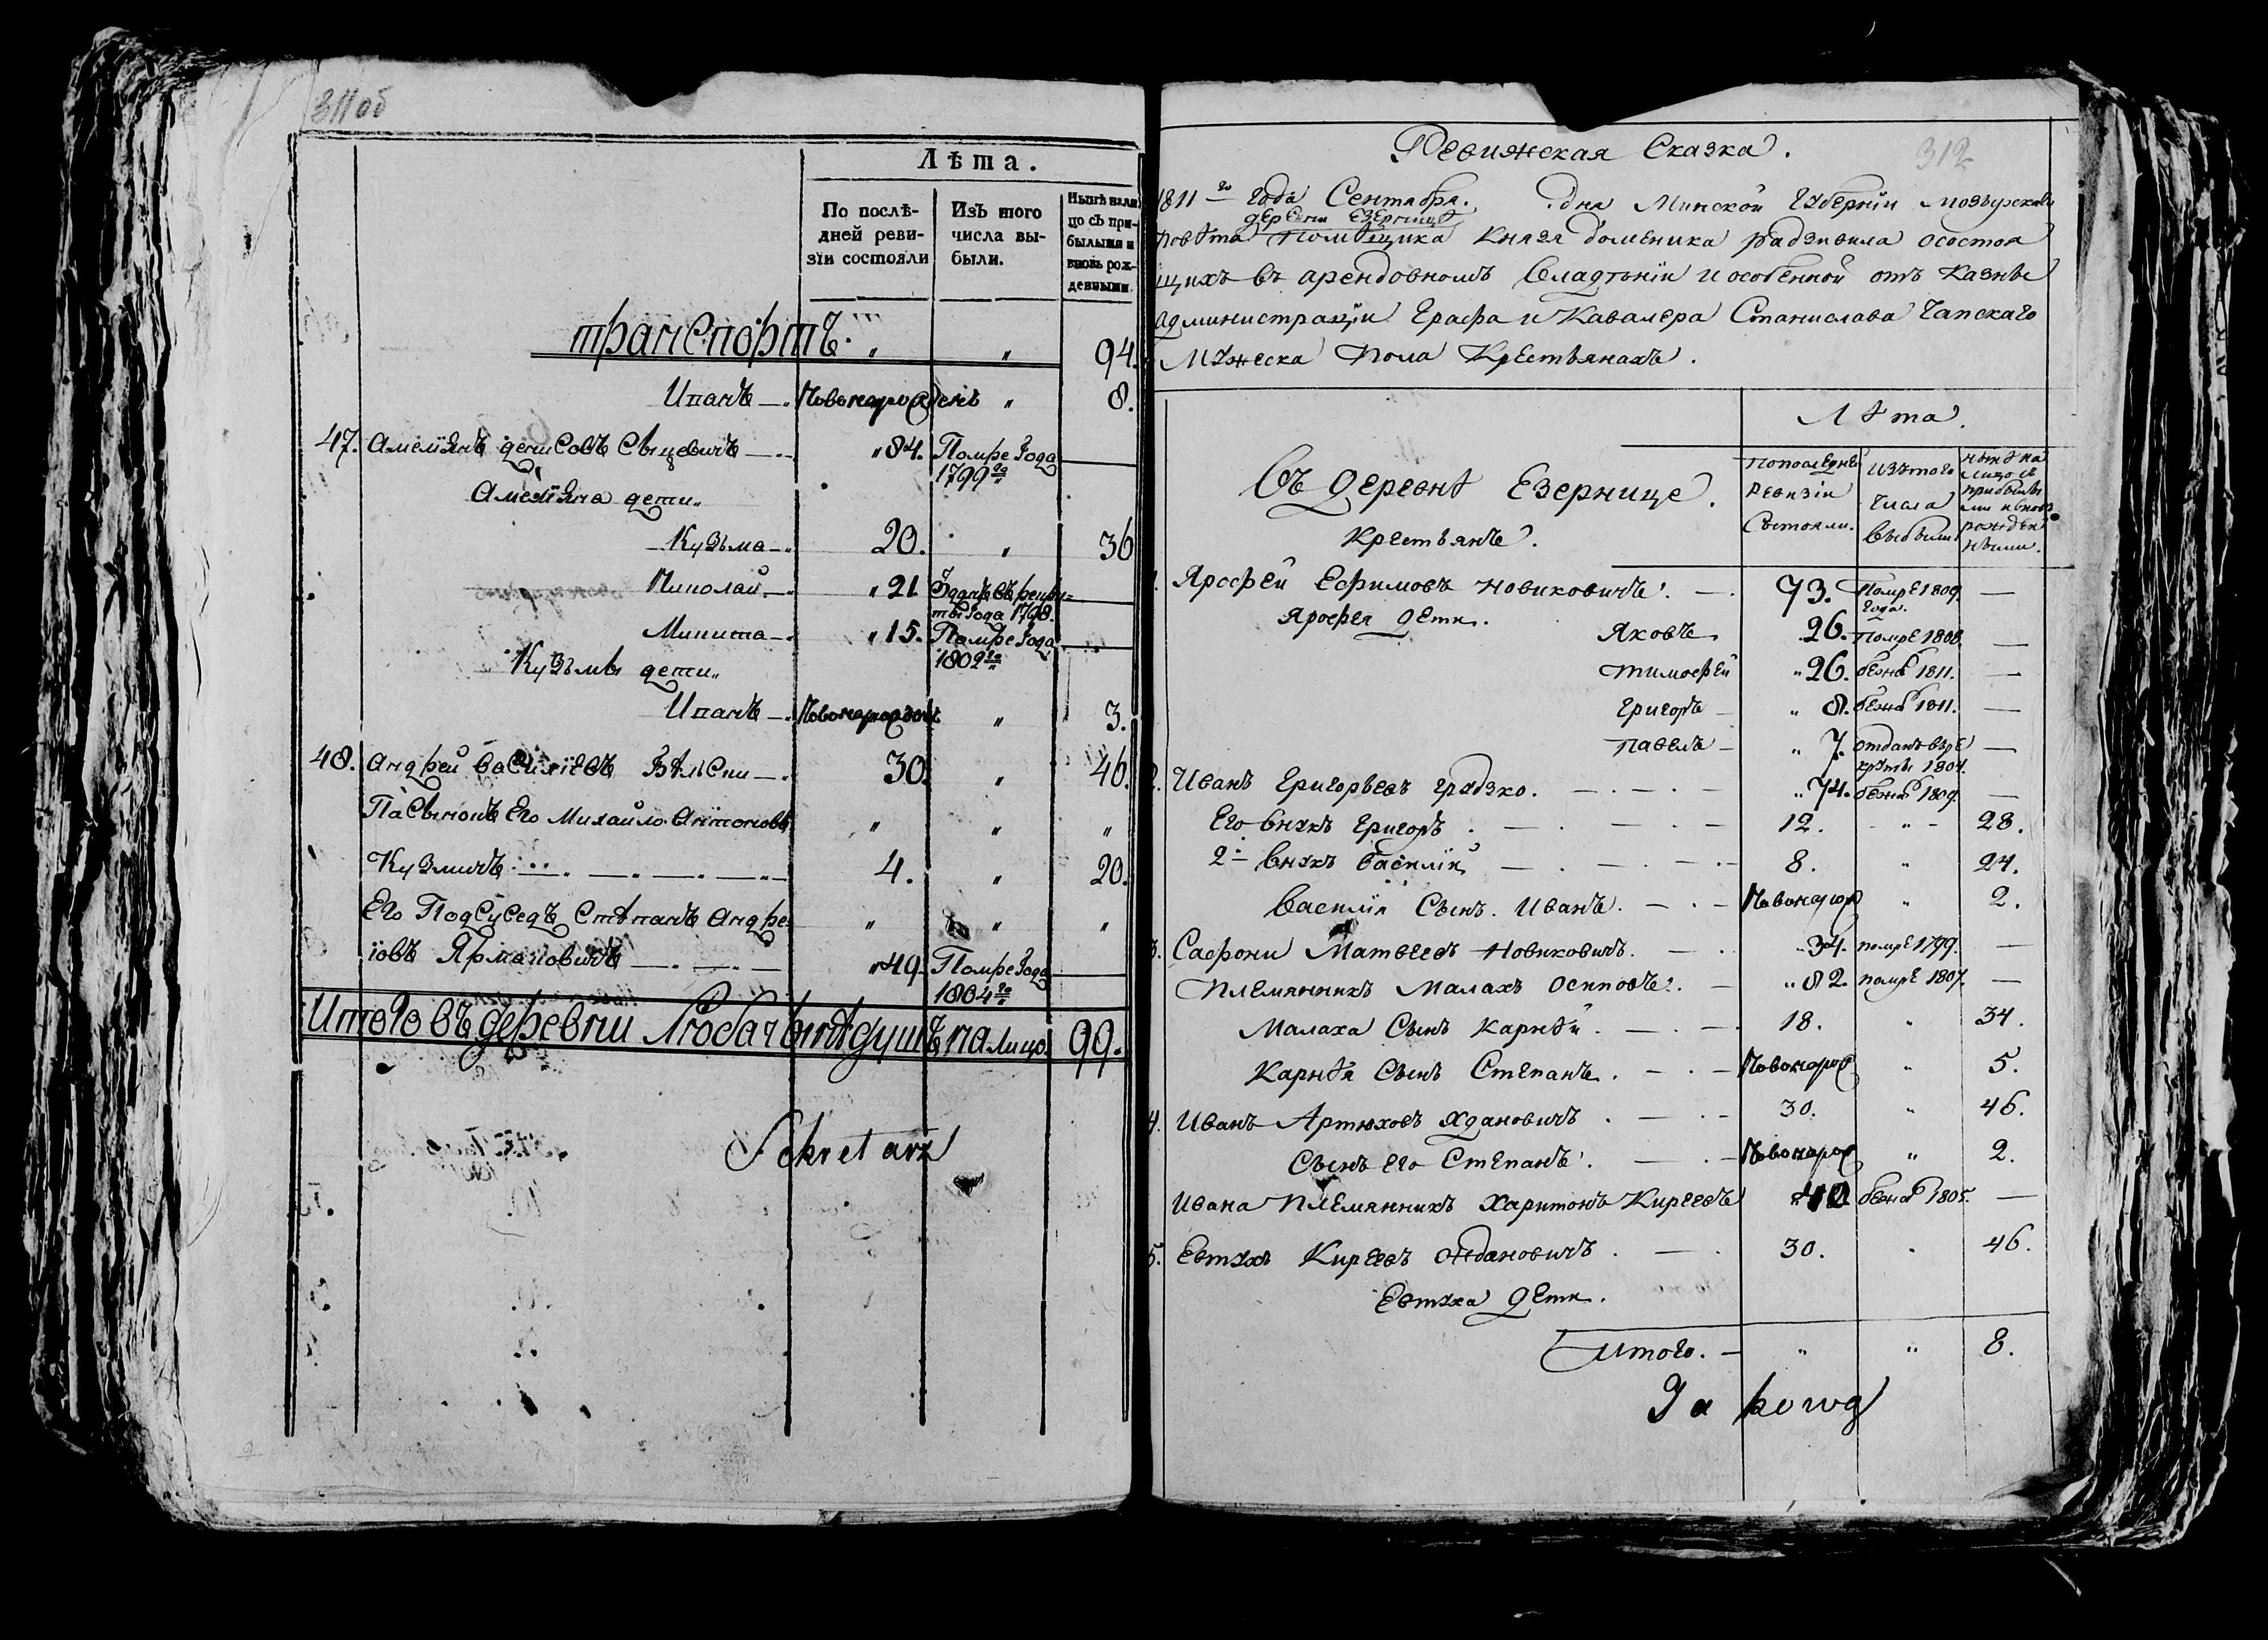 311 об
Лѣта.
По послѣдней ревизіи состояли
Изъ того числа выбыли.
Нынѣ на лицо съ прибылыми и вновь рожденными.
транспортъ. „ „ 94.
Иванъ — Новонарожденъ „ 8.
47. Амельянъ денисовъ Свцевичъ — 84. Помре года 1799го —
Амельяна дети
Кузьма — 20. „ 36
Николай — 21 Зданъ въ рекруты года 1798. —
Микита — 15. Помре года 1802го —
Кузьмы дети
Иванъ — Новонарожден. „ 3.
48. Андрей василіевъ Бѣлски — 30. „ 46.
Пасынокъ Его Михайло Антоновъ „ „ „
Кузмичъ — 4. „ 20.
Его Подсуседъ Стѣпанъ Андре „ „ „
іовъ Ярмаковичъ — 49. Помре года 1804го —
Итого въ деревни Любачынѣ душъ на лицо. 99.
Sekretarz
312
Ревижская Сказка.
1811го года Сентября. дня Минской Губерніи мозырскаго
деревни Езерницѣ
повѣта помѣщика Князя доменика радзивила осостоя
щихъ въ арендовномъ владѣніи и особенной отъ казны
администраціи Графа и Кавалера Станислава Чапскаго
Мужеска пола Крестьянахъ.
Лѣта.
Въ деревнѣ Езернице.
Крестьянъ.
Попоследней Ревизіи Състояли.
изътого Числа выбыли
нынѣ на лицо съ прибылыми и вновь рожденными.
1. Ярофей Ефимовъ Новиковичъ. — 73. Помре 1809 года. —
Ярофея дети.
Яковъ 26. Помре 1808. —
тимофей 26. бежа 1811. —
Григоръ — 8. бежа 1811. —
Павелъ — 7. отданъ въре круты 1804. —
2. Иванъ Григорьевъ градзко. — 74. бежа 1809. —
Его внукъ Григоръ. — 12. „ 28.
2й внукъ Василій — 8. „ 24.
Василія Сынъ Иванъ. — Новонарож „ 2.
3. Сафрони Матвеевъ Новиковичъ. — 34. помре 1799. —
Племянникъ Малахъ осиповъ. — 82. помре 1807. —
Малаха Сынъ Карнѣй. — 18. „ 34.
Карнѣя Сынъ Степанъ. — Новонарож „ 5.
4. Иванъ Артюховъ Ждановичъ. — 30. „ 46.
Сынъ Его Степанъ. — Новонарож „ 2.
Ивана Племянникъ Харитонъ Киреевъ бежа 1805. —
5. Евтухъ Киреевъ Ждановичъ. — 30. „ 46.
Евтуха дети.
Итого. — „ „ 8.